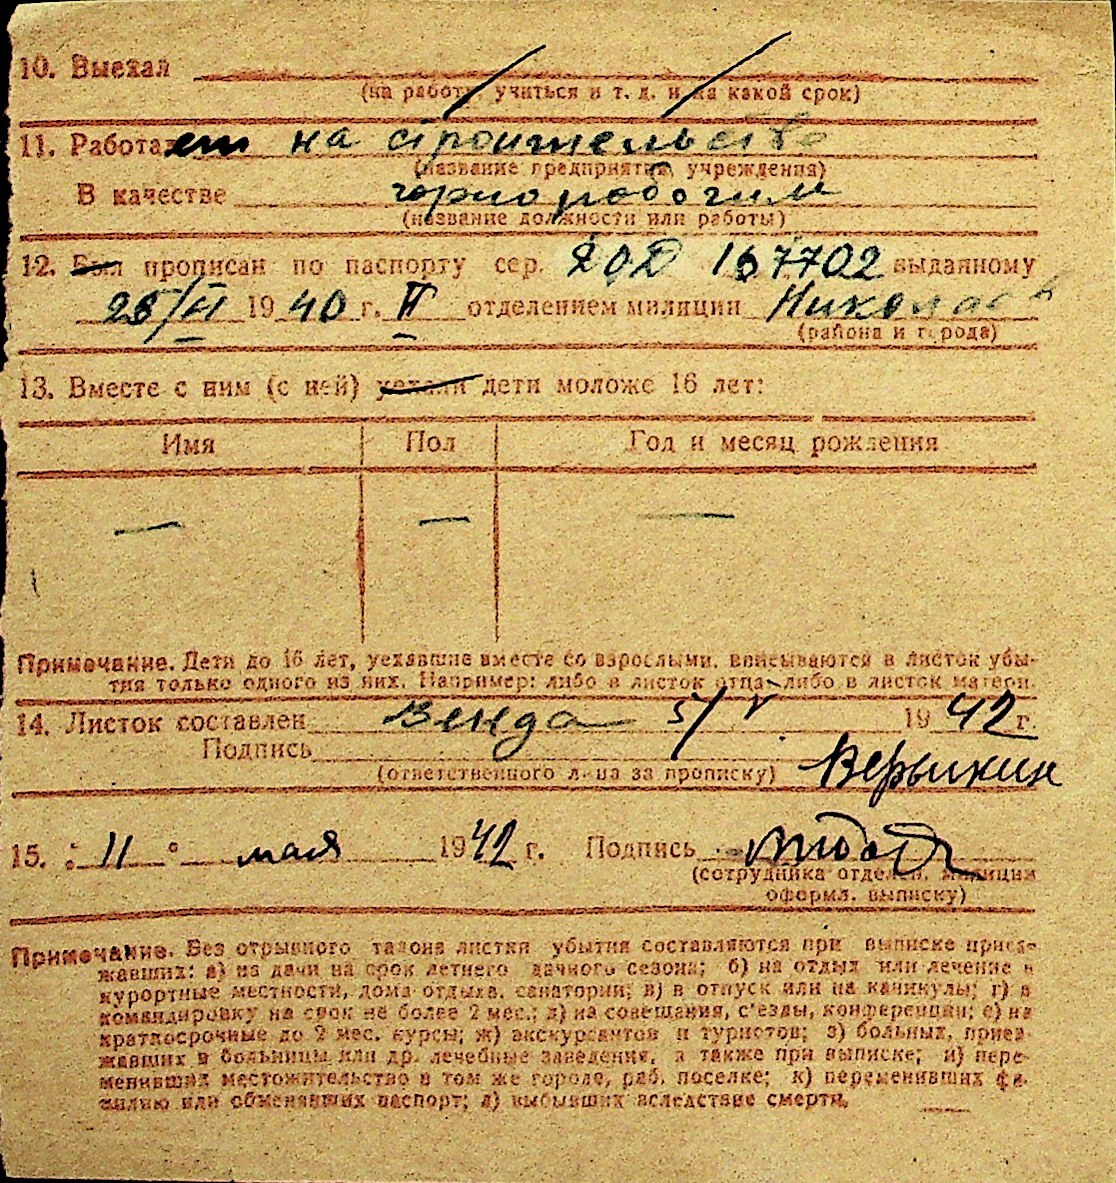 10. Выехал
(на работу, учиться и т. д. и на какой срок)
11. Работает на строительстве
(название предприятия, учреждения)
В качестве чорнорабочим
(название должности или работы)
12. Был прописан по паспорту сер. 167702 выданному
1940 г. II отделением милиции Николаев
(района и города)
13. Вместе с ним (с ней) уехали дети моложе 16 лет:
Имя Пол Год и месяц рождения
— — —
Примечание. Дети до 16 лет, уехавшие вместе со взрослыми, вписываются в листок убы-
тия только одного из них. Например: либо в листок отца либо в листок матери.
14. Листок составлен 5/V 1942 г.
Подпись
(ответственного лица за прописку) Верыкин
15. „11“ мая 1942 г. Подпись
(сотрудника отделен. милиции
оформл. выписку)
Примечание. Без отрывного талона листки убытия составляются при выписке приез-
жавших: а) из дачи на срок летнего дачного сезона; б) на отдых или лечение в
курортные местности, дома отдыха, санатории; в) в отпуск или на каникулы; г) в
командировку на срок не более 2 мес.; д) на совещания, с'езды, конференции; е) на
краткосрочные до 2 мес. курсы; ж) экскурсантов и туристов; з) больных, приез-
жавших в больницы или др. лечебные заведения, а также при выписке; и) пере-
менивших местожительство в том же городе, раб. поселке; к) переменивших фа-
милию или обменявших паспорт; л) выбывших вследствие смерти.